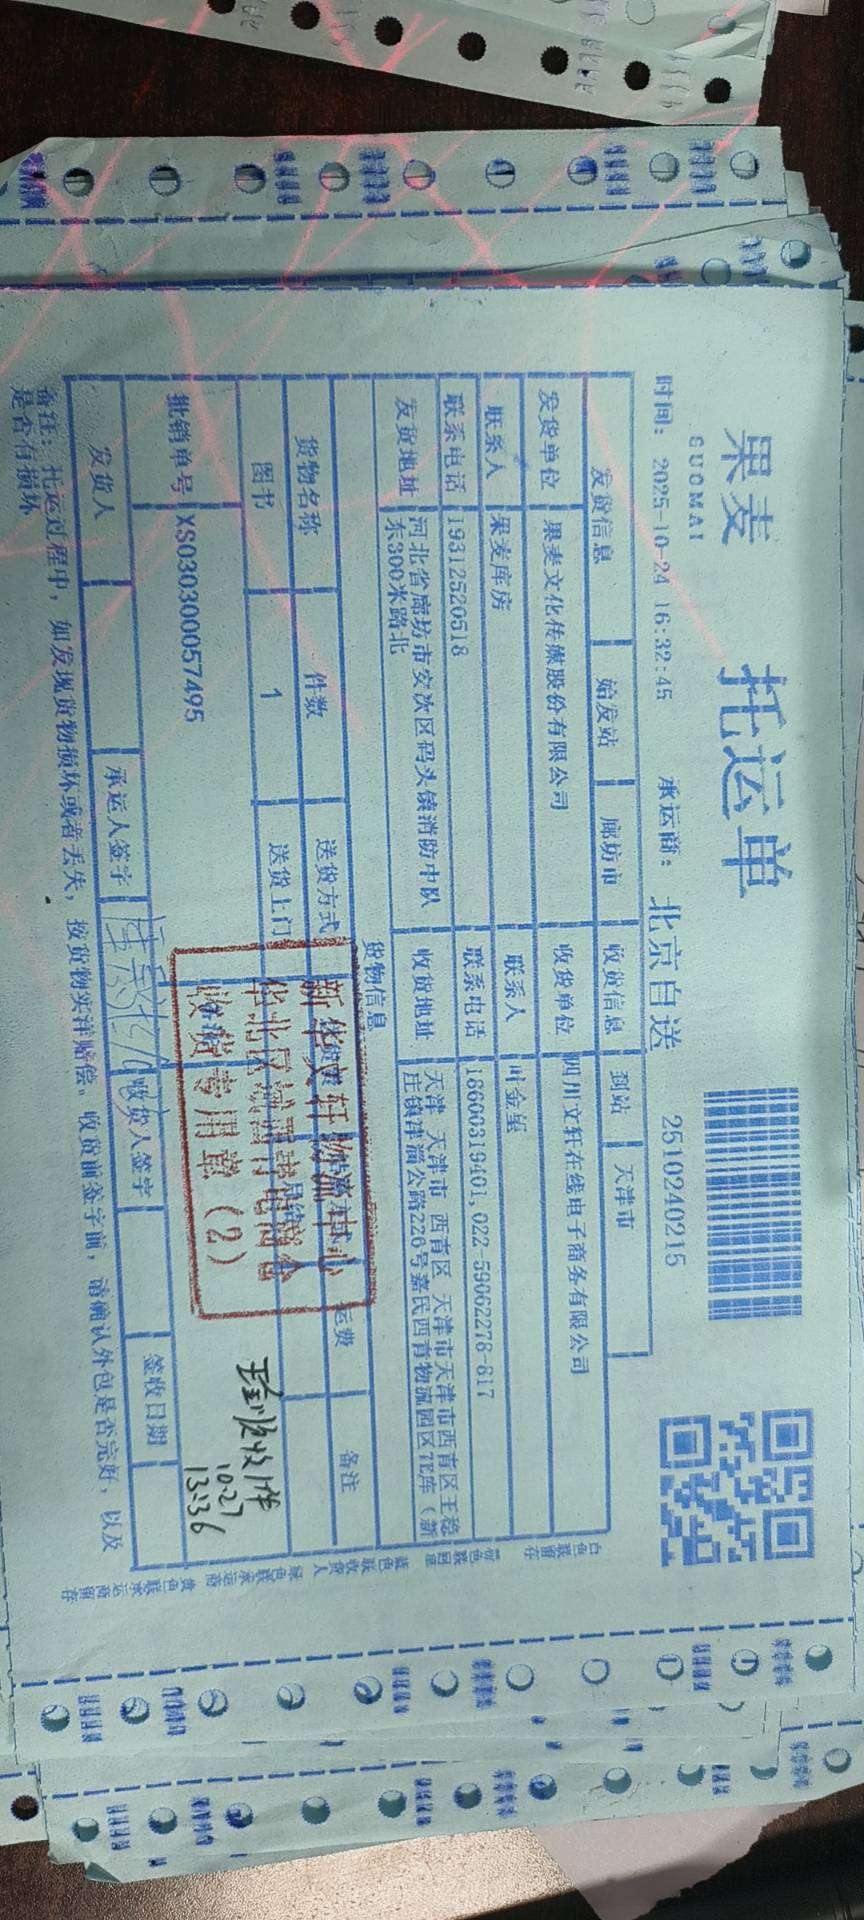 果麦 托运单
GUOMAI
时间: 2025-10-24 16:32:45 承运商: 北京自送 2510240215
发货信息 始发站 廊坊市 收货信息 到站 天津市
发货单位 果麦文化传媒股份有限公司 收货单位 四川文轩在线电子商务有限公司
联系人 果麦库房 联系人
联系电话 19312520518 联系电话 18600319401,022-59062278-817
发货地址 河北省廊坊市安次区码头镇消防中队 收货地址 天津 天津市 西青区 天津市天津市西青区王稳
东300米路北 庄镇津淄公路226号嘉民西青物流园区7E库（新
货物信息
货物名称 件数 送货方式 运费 备注
图书 1 送货上门
批销单号 XS030300057495
新华文轩物流中心
收货专用章（2）
10.27
13:36
发货人 承运人签字 收货人签字 签收日期
备注: 托运过程中, 如发现货物损坏或者丢失, 按货物实洋赔偿。收货前签字前, 请确认外包是否完好, 以及
是否有损坏
白色联留存 粉色联回单 蓝色联收货人 绿色联承运商 黄色联承运商留存